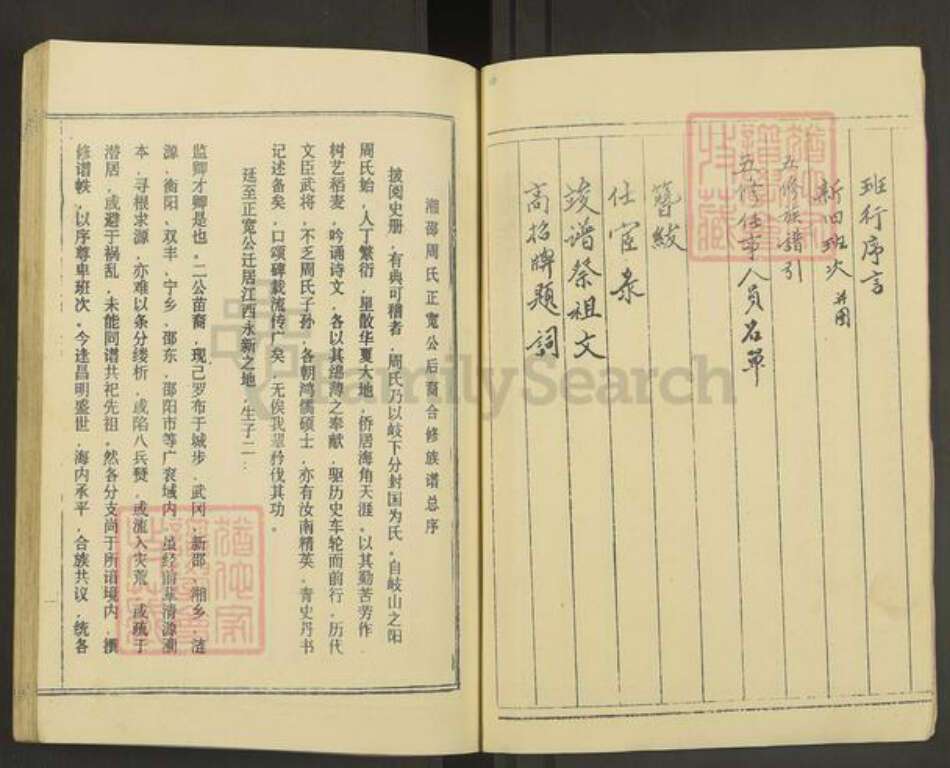 班行序言
新田班次 并图
五修族谱引
五修任事人员名单
簪紱
仕宦录
竣谱祭祖文
高招牌题词
湘邵周氏正宽公后裔合修族谱总序
披阅史册，有典可稽者，周氏乃以岐下分封国为氏。自岐山之阳
周氏始，人丁繁衍，星散华夏大地，侨居海角天涯。以其勤苦劳作，
树艺稻麦，吟诵诗文，各以其绵薄之奉献，驱历史车轮而前行，历代
文臣武将，不乏周氏子孙，各朝鸿儒硕士，亦有汝南精英，青史丹书
记述备矣，口颂碑载流传广矣，无俟我辈矜伐其功。
廷至正宽公迁居江西永新之地，生子二：
监卿才卿是也。二公苗裔，现已罗布于城步，武冈，新邵，湘乡，涟
源，衡阳，双丰，宁乡，邵东，邵阳市等广袤域内，虽经前辈清源溯
本，寻根求源，亦难以条分缕析，或陷入兵燹，或流入灾荒，或疏于
潜居，或避于祸乱，未能同谱共祀先祖。然各分支尚于所谙境内，撰
修谱帙，以序尊卑班次。今逢昌明盛世，海内承平，合族共议，统各
FamilySearch